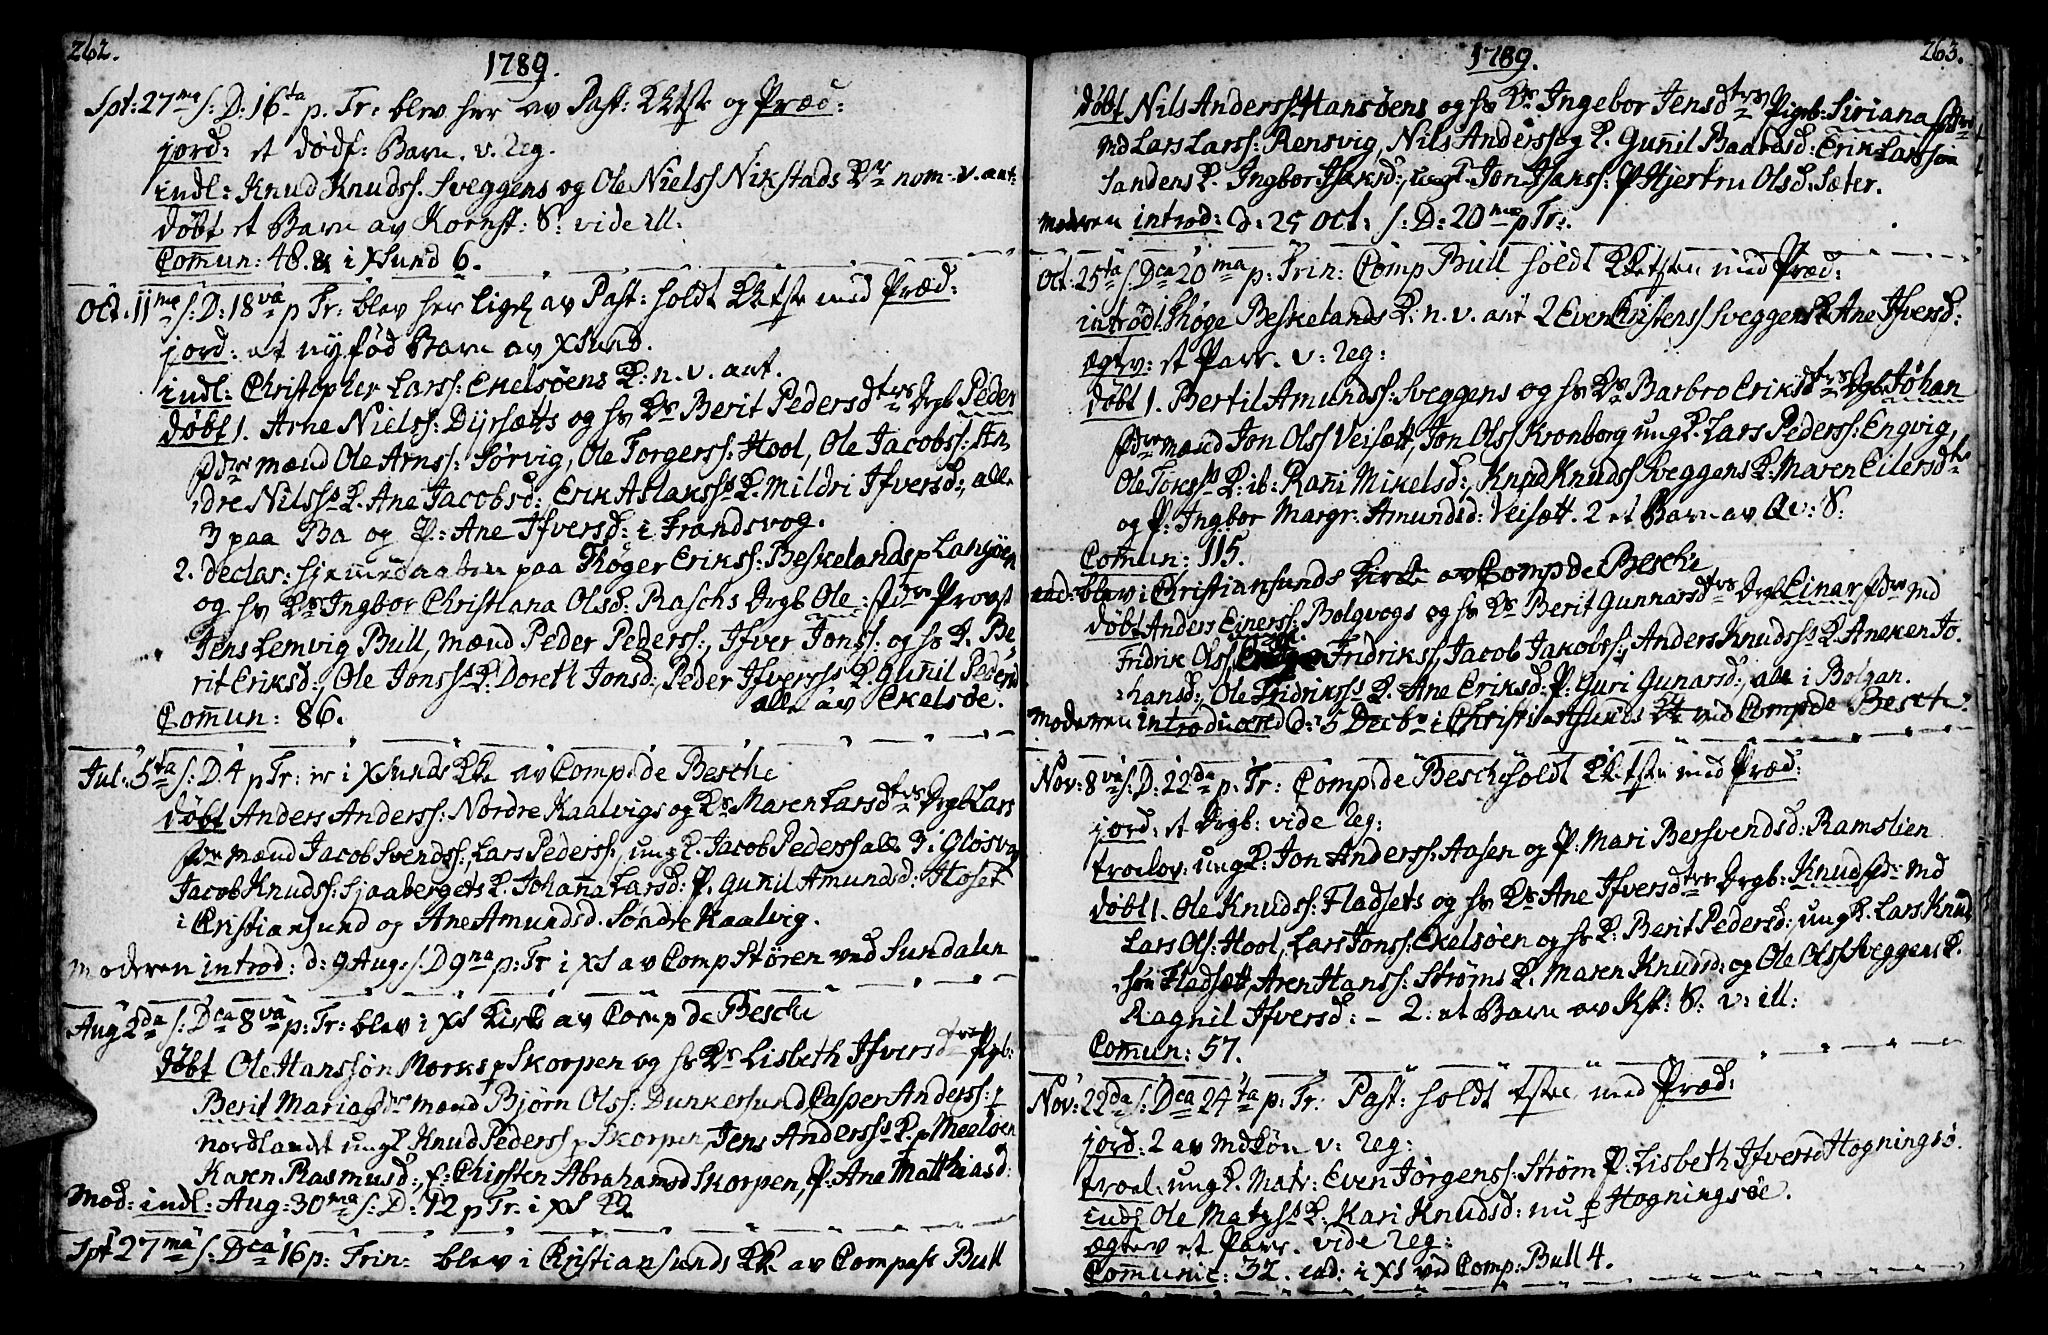 262.
1789.
Spt: 27ma S: D: 16ta p. Tr: blev her av Past: KKtste og Præd:
jord: et dødf: Barn. v. Reg.
indl: Knud Knudss. Sveggens og Ole Nielss Nikstads Kr nom. v. ant:
døbt et Barn av Kornst: S: vide ill:
Com̄un: 48. & i XSund 6.
Oct. 11ma S: D: 18va p Tr: blev her ligel av Past: holdt KKtste med Præd:
jord: et nyfød Barn av XSund.
indl: Christopher Larss: Ekelsöens K: n. v. ant.
døbt 1. Arne Nielss: Dyrsætts og hs Kr Berit Pedersdtrs Drgb Peder
fdre mænd Ole Arnss: Sørvig, Ole Torgerss: Hool, Ole Jacobss: An-
dre Nilsss K. Ane Jacobsd: Erik Aslaksss K. Mildri Ifversd:, alle
3 paa Ba og P: Ane Ifversd: i Frandsvog.
2. declar: hjem̄edaaben paa Thöger Erikss: Beskelands p Langöen
og hs Kr Ingbor Christiana Olsd: Raschs Drgb Ole: fdre Provst
Jens Lemvig Bull, mænd Peder Pederss:, Ifver Jonss: og hs K. Be,
rit Eriksd:, Ole Jonsss K: Doreth Jonsd:, Peder Ifversss K. Gun̄il Pedersd
alle av Ekelsöe.
Com̄un: 86.
Jul: 5ta S: D. 4 p Tr: er i XSunds KKe av Comp: de Besche
døbt Anders Anderss: Nordre Kaalvigs og Kr Maren Larsdtrs Drgb Lars
fdre mænd Jacob Svendss:, Lars Pederss:, ungK. Jacob Pederss alle 3 i Glosvog
Jacob Knudss: Sjaabergets K. Johan̄a Larsd: P. Gun̄il Amundsd: Hoset
i Cristiansund og Ane Amundsd. Søndre Kaalvig.
moderen introd: d: 9 Aug: S D 9na p: Tr i XS av Comp Stören ved Sundalen
Aug 2da S: Dca 8va p: Tr: blev i XS Kirke av Comp de Besche
døbt Ole Hanssøn Morks p Skorpen og hs Kr Lisbeth Ifversdtrs Pgb:
Berit Maria fdre mænd Bjørn Olss: Dunkersund Casper Anderss: i
Nordlandt ungK Knud Pederss p Skorpen, Jens Andersss K. p Meeløen
Karen Rasmusd:, E: Chirsten Abrahamsd Skorpen, P: Ane Matthiasd:
Mod: indl: Aug: 30ma S: D: 12 p Tr. i XS K
Spt 27ma S: Dca 16 p: Trin: blev i Cristiansunds KKe av Compast Bull
1789.
263.
døbt Nils Anderss: Hansöens og hs Kr Ingebor Jensdtrs Pigeb: Siriana fdre
md Lars Larss: Rensvig, Nils Anderss og K. Gun̄il Baardsd: Erik Larssøn
Sandens K. Ingbor Isaksd: ungK. Jon Isakss: P Hjertru Olsd. Sæter.
Moderen introd: d: 25 Oct: S: D: 20ma p Tr:
Oct: 25ta S: Dca 20ma p: Trin: Comp Bull holdt KKetsten med Præd:
introd 1 Thöge Beskelands K: n. v. ant 2 Even Cristenss Sveggens K Ane Ifversd:
ægtev: et Parr. v: Reg:
døbt 1. Bertil Amundss: Sveggens og hs Kr Barbro Eriksdtrs Drgb Johan
fdre mænd Jon Olss Veisætt, Jon Olss Kronborg ungK. Lars Pederss: Engvig,
Ole Tokss K: ib: Ran̄i Mikelsd:, Knud Knudss Sveggens K. Maren Eilersdtr
og P: Ingbor Margr: Amundsd: Veisætt. 2 et Barn av Qv: S:
Com̄un: 115.
eod: blev i Christiansunds Kirke av Comp de Besche
døbt Anders Einerss: Bolgvogs og hs Kr Berit Gunnarsdtrs Drgb Einar fdre md
Fridrik Olss, Fridrikss, Jacob Jakobss:, Anders Knudsss K. Aneken Jo-
hansd:, Ole Fridriksss K. Ane Eriksd: P: Guri Gunarsd:, alle i Bolgan.
Moderen introduc: d: 5 Decbr i Christiansunds KK ved Comp de Besche:
Nov: 8va S: D: 22da p: Tr: Comp: de Besche holdt KKetsten med Præd:
jord: et Drgb: vide Reg:
troelov: ungK: Jon Anderss: Aasen og P: Mari Bersvendsd: Ramslien
døbt 1. Ole Knudss: Fladsets og hs Kr Ane Ifversdtrs Drgb: Knud fdre md
Lars Ols: Hool, Lars Jonss: Ekelsöen og hs K: Berit Pedersd: ungK. Lars Knud
søn Fladsætt, Aren Hanss: Ströms K. Maren Knudsd: og Ole Olss Sveggens K.
Ragnil Ifversd: – 2: et Barn av Kst: S: v: ill:
Com̄un: 57.
Nov: 22da S: Dca 24ta p: Tr: Past: holdt tsten med Præd:
jord: 2 av mdkøn v: Reg:
troel: ungK. Matr: Even Jörgenss: Ström P. Lisbeth Ifversd Hogningsö.
indl Ole Matsss K: Kari Knudsd: nu p Hogningsöe.
ægtev et Parr. vide Reg:
Com̄unic: 32. eod: i XS ved Comp: Bull 4.